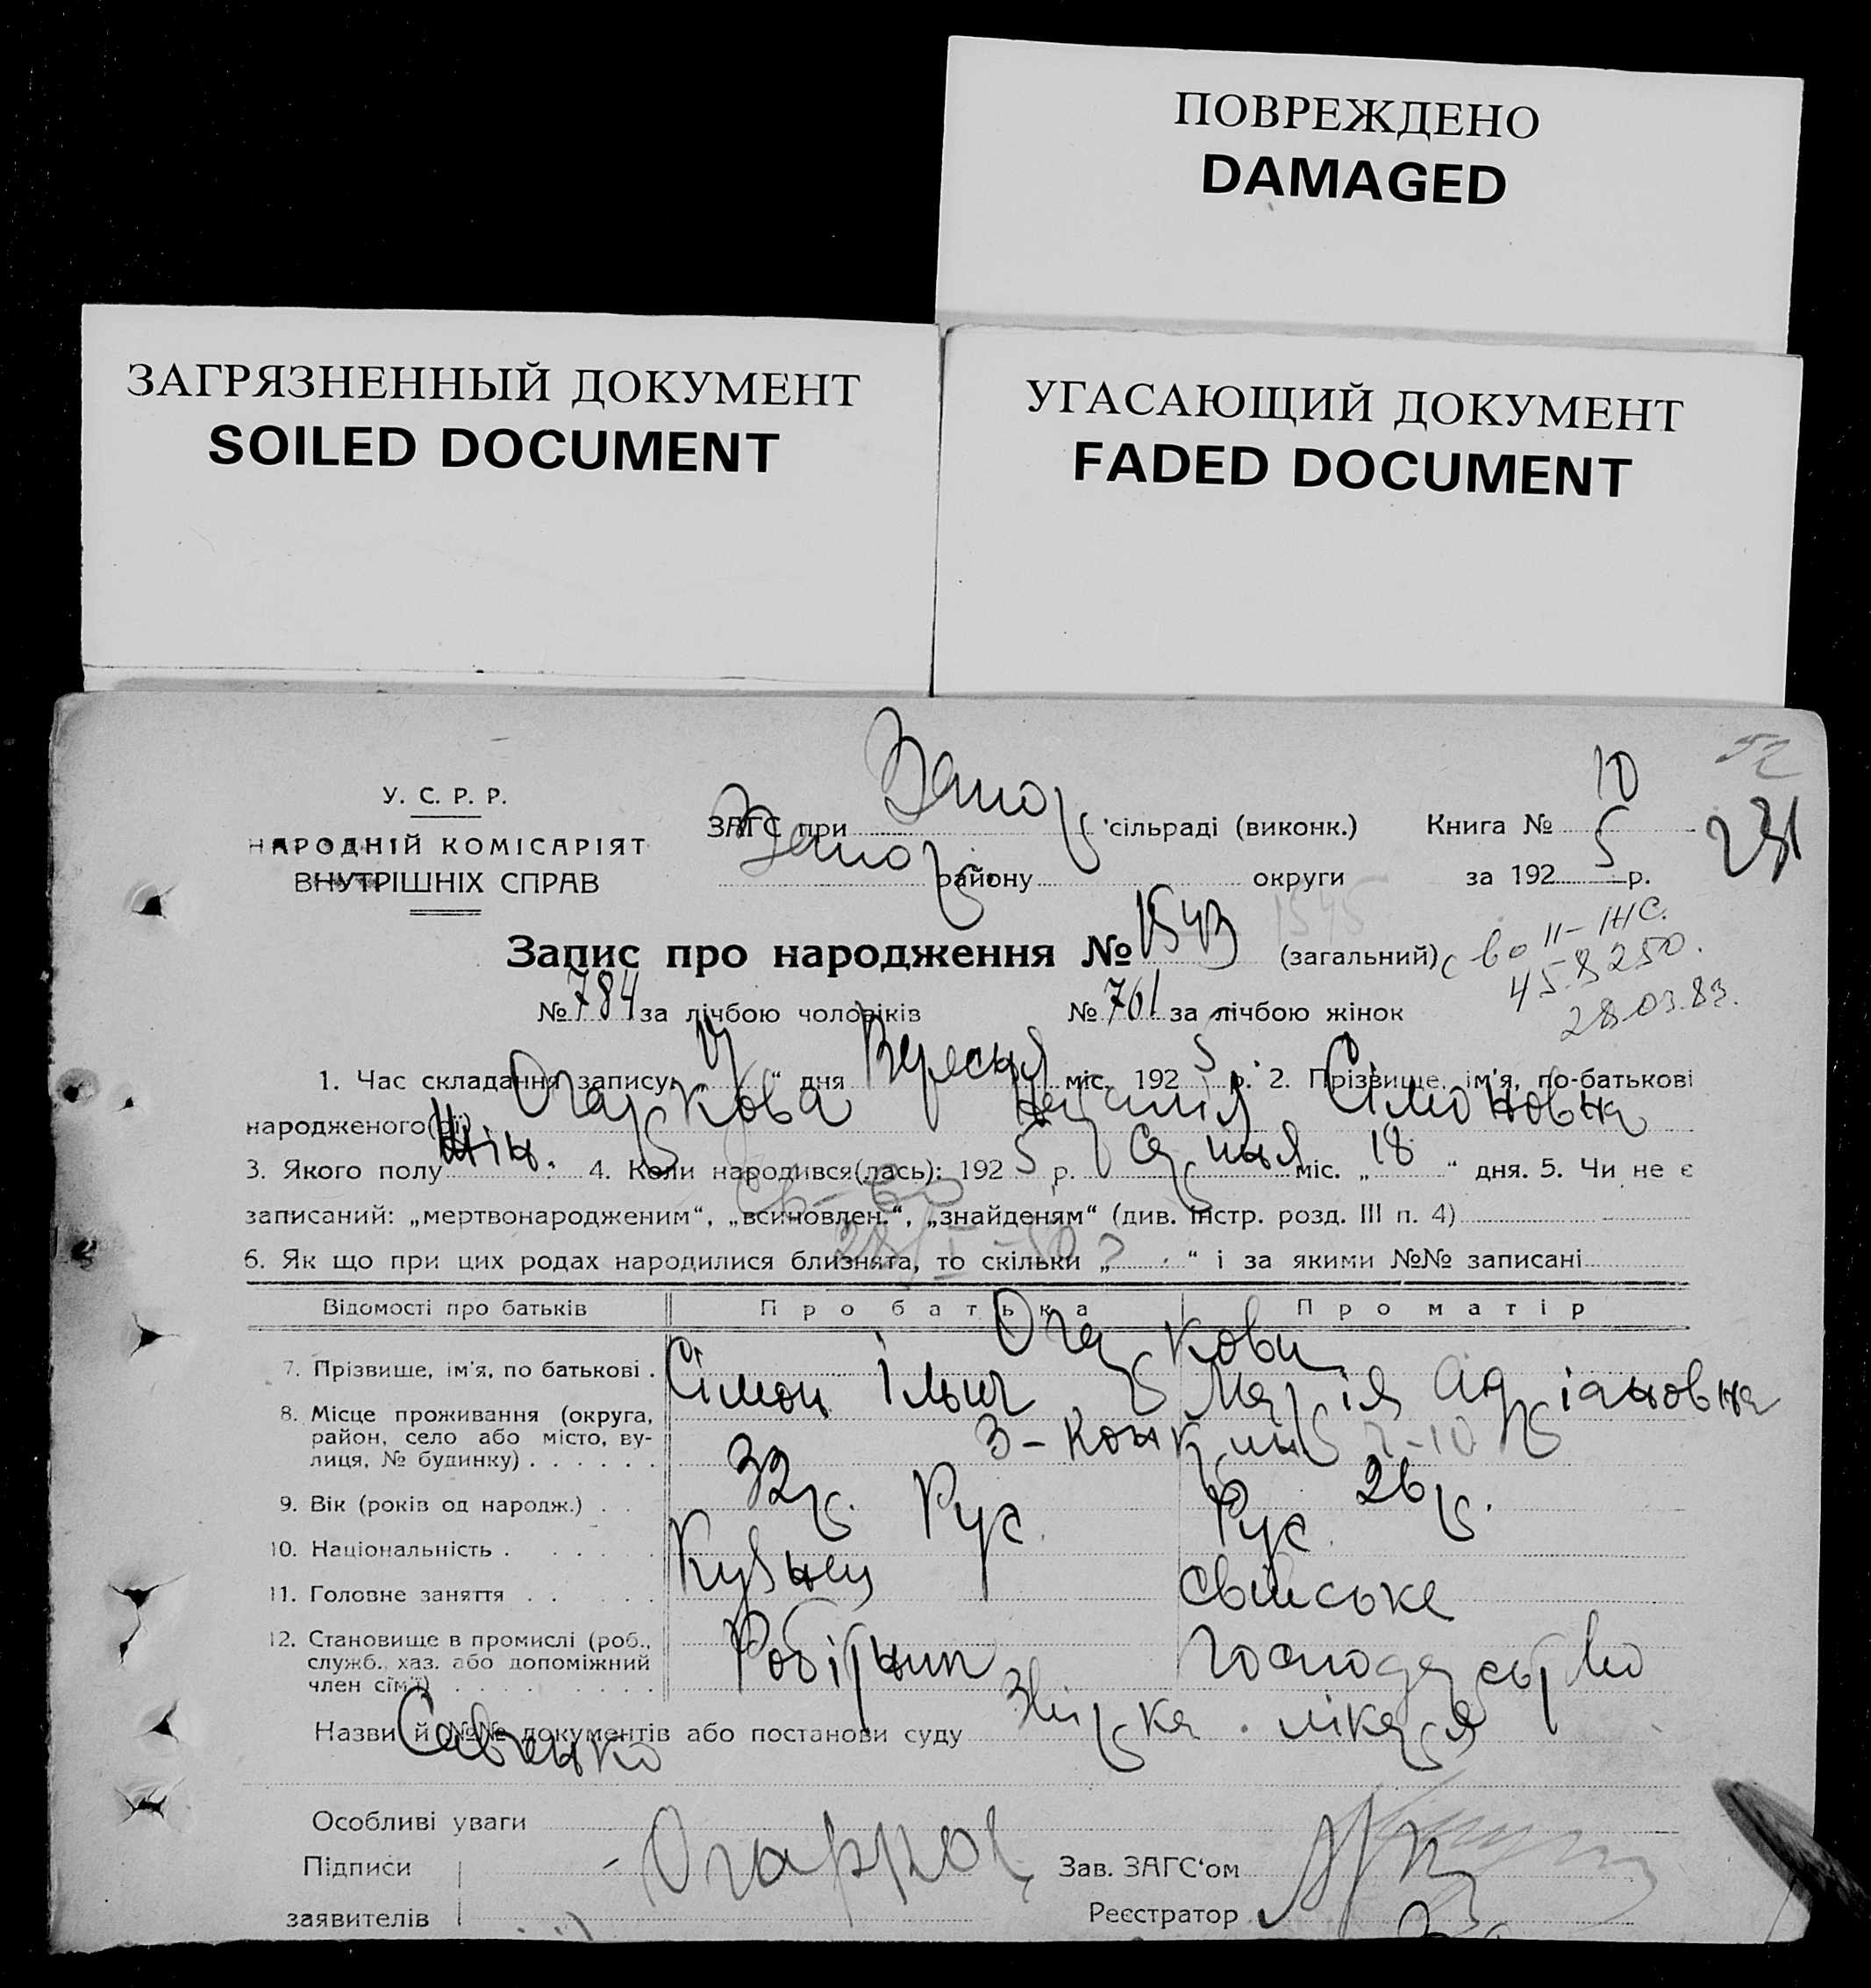 ПОВРЕЖДЕНО
DAMAGED
ЗАГРЯЗНЕННЫЙ ДОКУМЕНТ
SOILED DOCUMENT
УГАСАЮЩИЙ ДОКУМЕНТ
FADED DOCUMENT
52
231
У. С. Р. Р.
НАРОДНІЙ КОМІСАРІЯТ
ВНУТРІШНІХ СПРАВ
ЗАГС при Запор сільраді (виконк.) Книга № 10
Запор району округи за 1925 р.
Запис про народження № 1543 (загальний)
1545
с во II-ЖС.
458250.
28.03.83.
№ 784 за лічбою чоловіків № 761 за лічбою жінок
1. Час складання запису: „ “ дня Вересня міс. 1925 р. 2. Прізвище, ім'я, по-батькові
народженого(ої) Огаркова Наталія Сімоновна
3. Якого полу Жін. 4. Коли народився(лась): 1925 р. Серпня міс. „ 18 “ дня. 5. Чи не є
записаний: „мертвонародженим“, „всиновлен.“, „знайденям“ (див. інстр. розд. III п. 4)
Св-во
6. Як що при цих родах народилися близнята, то скільки „ “ і за якими №№ записані
Відомості про батьків Про батька Про матір
Огаркови
7. Прізвище, ім'я, по батькові . Сімон Ільич Марія Адріановна
8. Місце проживання (округа, район, село або місто, вулиця, № будинку) . . . . . .
9. Вік (років од народж.) . . 32 р. 26 р.
10. Національність . . . . . . Рус. Рус.
11. Головне заняття . . . . . Кузнец Свійське
12. Становище в промислі (роб., служб., хаз. або допоміжний член сім'ї) . . . . . . . . . Робітник господарство
Назви й №№ документів або постанови суду Звірка лікаря
Савенко
Особливі уваги
Підписи Огарков Зав. ЗАГС'ом
заявителів Реєстратор